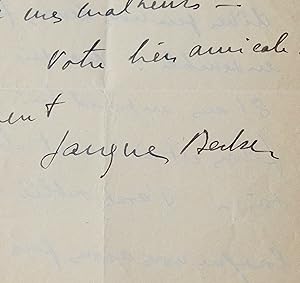 mes malheurs —
Votre bien amicale-
ment
Jacques Becker